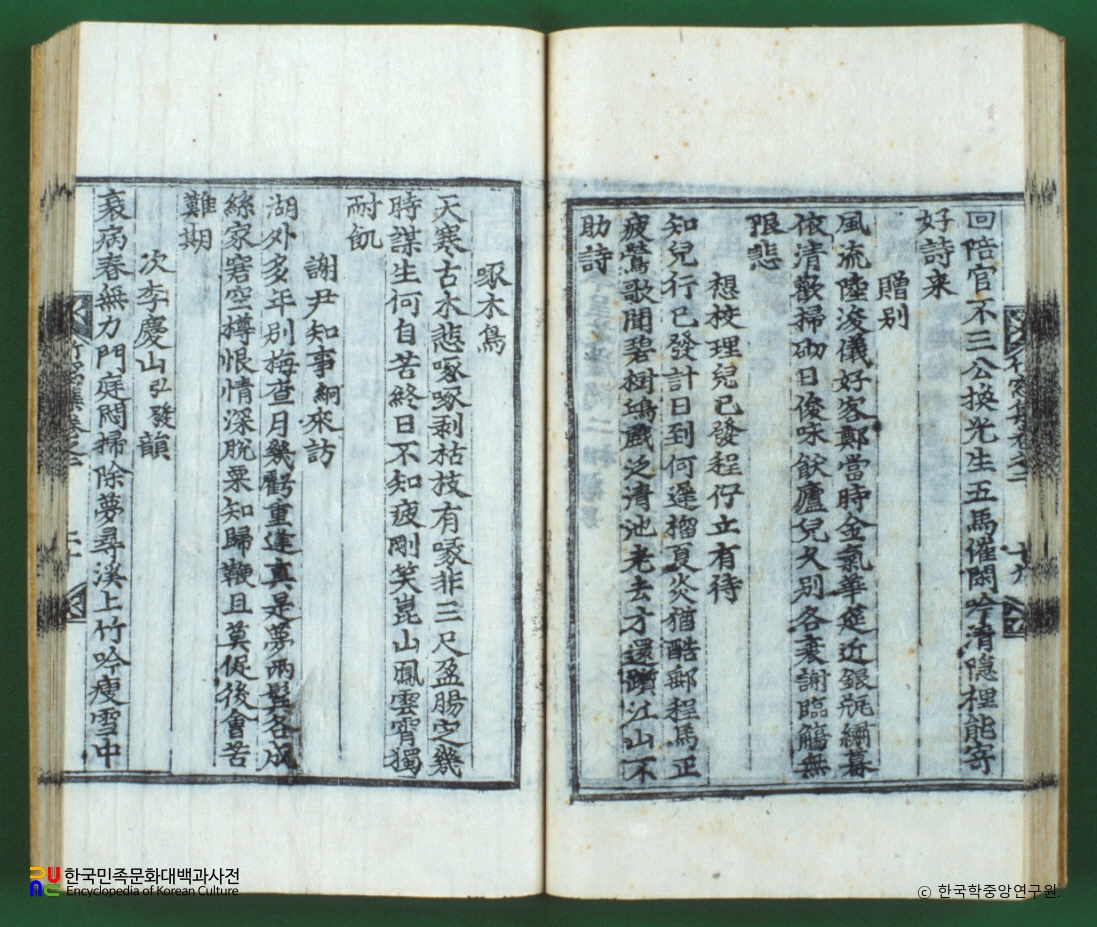 回陪官不三公換光生五馬催閑吟清隱裡能寄
好詩来
贈别
風流陸浚儀好客鄭當時金氣華筵近銀甁繡幕
依清歡掃砌日俊味飫廬兒久别各衰謝臨觴無
限悲
想校理兒已發程佇立有待
知兒行已發計日到何遲榴夏炎猶酷郵程馬正
疲鶯歌聞碧樹鴻戱泛淸池老去才還躓江山不
助詩
啄木鳥
天寒古木悲啄啄剥枯枝有喙非三尺盈膓定幾
時謀生何自苦終日不知疲剛笑崑山鳳雲霄獨
耐飢
謝尹知事絅來訪
湖外多年别梅查月幾虧重逢真是夢兩鬂各成
絲家窘空樽恨情深脫粟知歸鞭且莫促後會苦
難期
次李慶山弘發韻
衰病春無力門庭閟掃除夢尋溪上竹吟瘦雪中
한국민족문화대백과사전
Encyclopedia of Korean Culture
ⓒ 한국학중앙연구원